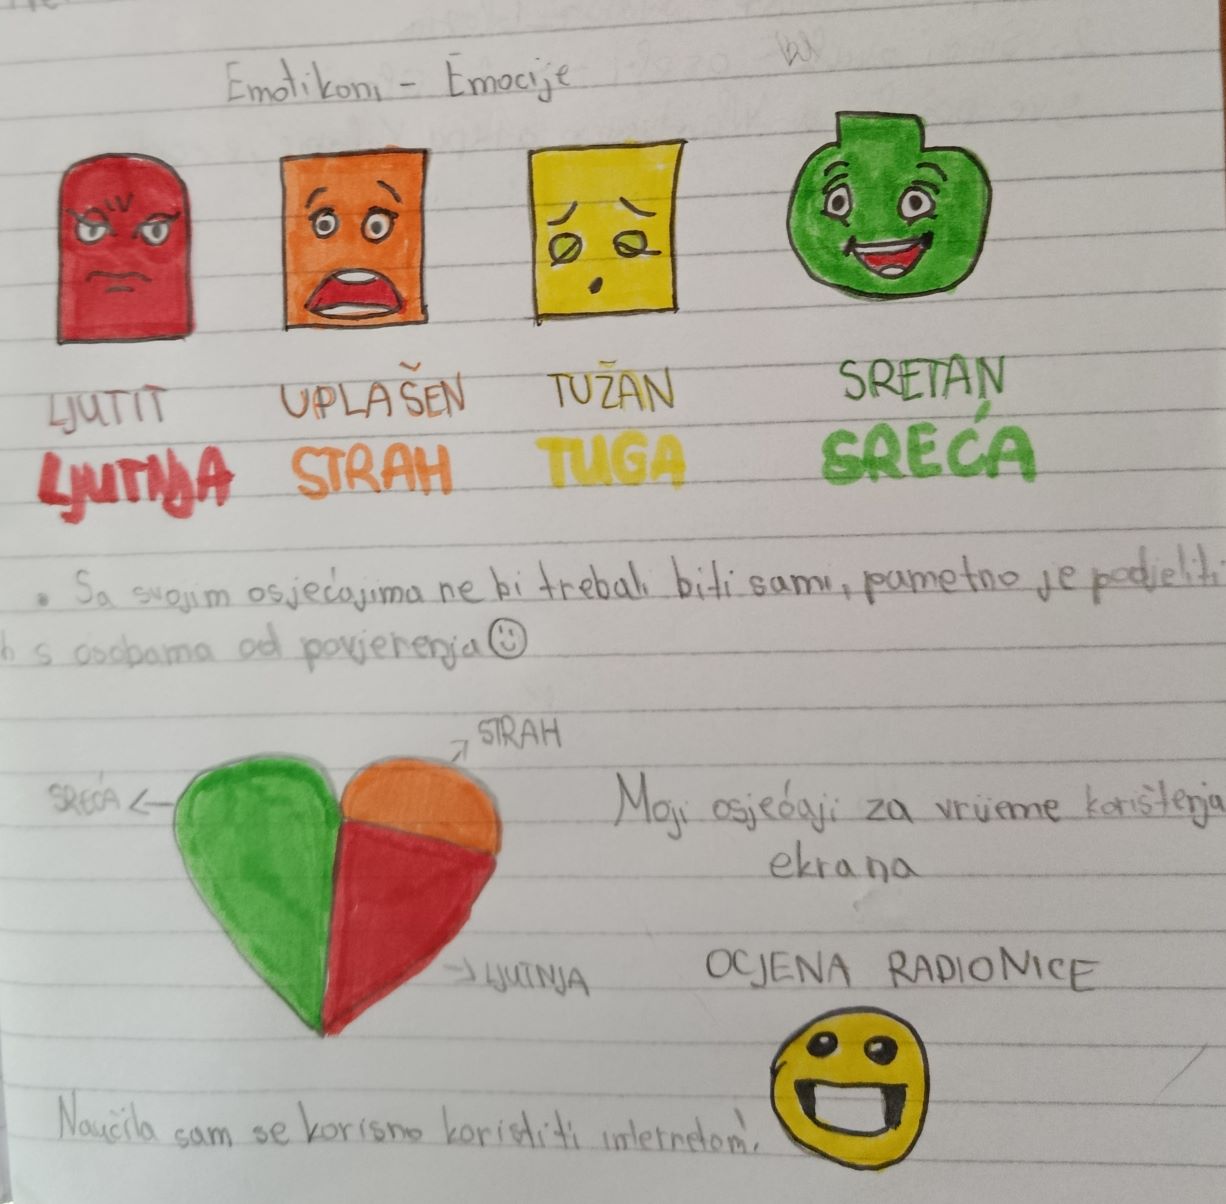 Emotikoni - Emocije
LJUTIT UPLAŠEN TUŽAN SRETAN
LJUTNJA STRAH TUGA SREĆA
• Sa svojim osjećajima ne bi trebali biti sami, pametno je podjeliti
s osobama od povjerenja
STRAH
SREĆA
Moji osjećaji za vrijeme korištenja
ekrana
LJUTNJA
OCJENA RADIONICE
Naučila sam se korisno koristiti internetom!